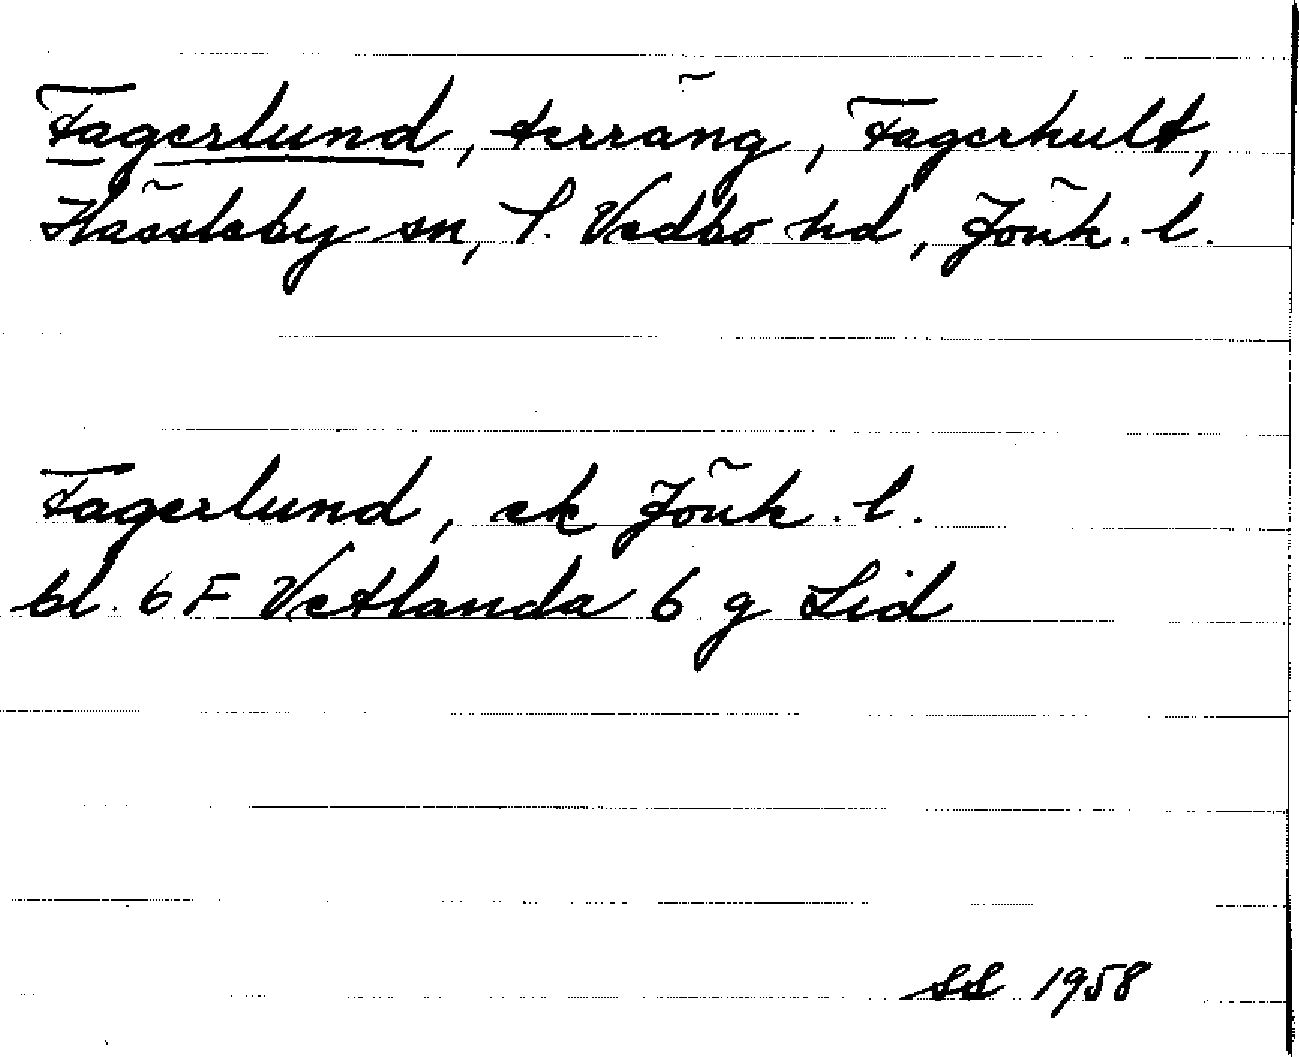 Fagerlund, terräng, Fagerhult,
Hässleby sn, S. Vedbo hd, Jönk. l.
Fagerlund, ek Jönk. l.
bl. 6 F Vetlanda 6 g Lid
SS 1958